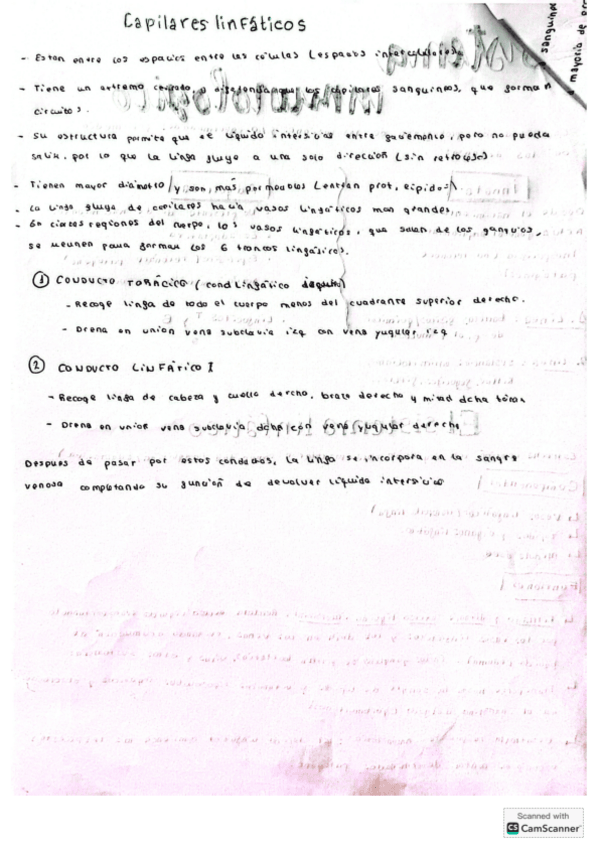 Capilares linfáticos
sanguíneos
mayoría de
- Estan entre los espacios entre las células (espacios intercelulares)
- Tiene un extremo cerrado, a diferencia que los capilares sanguíneos, que forman
circuitos.
- Su estructura permite que el líquido intersticial entre facilmente, pero no pueda
salir, por lo que la linfa fluye a una sola dirección (sin retroceso)
- Tienen mayor diámetro y son más permeables (entran prot, lípidos)
- La linfa fluye de capilares hacia vasos linfáticos mas grandes
- En ciertas regiones del cuerpo, los vasos linfáticos, que salen de los ganglios,
se reunen para formar los 6 troncos linfáticos.
① CONDUCTO TORÁCICO (cond linfático izquierdo)
- Recoge linfa de todo el cuerpo menos del cuadrante superior derecho.
- Drena en union vena subclavia izq con vena yugular izq
② CONDUCTO LINFÁTICO I
- Recoge linfa de cabeza y cuello dercho, brazo derecho y mitad dcha tórax
- Drena en union vena subclavia dcha con vena yugular derecha
Despues de pasar por estos conductos, la linfa se incorpora en la sangre
venosa completando su función de devolver líquido intersticial
Scanned with
CS CamScanner